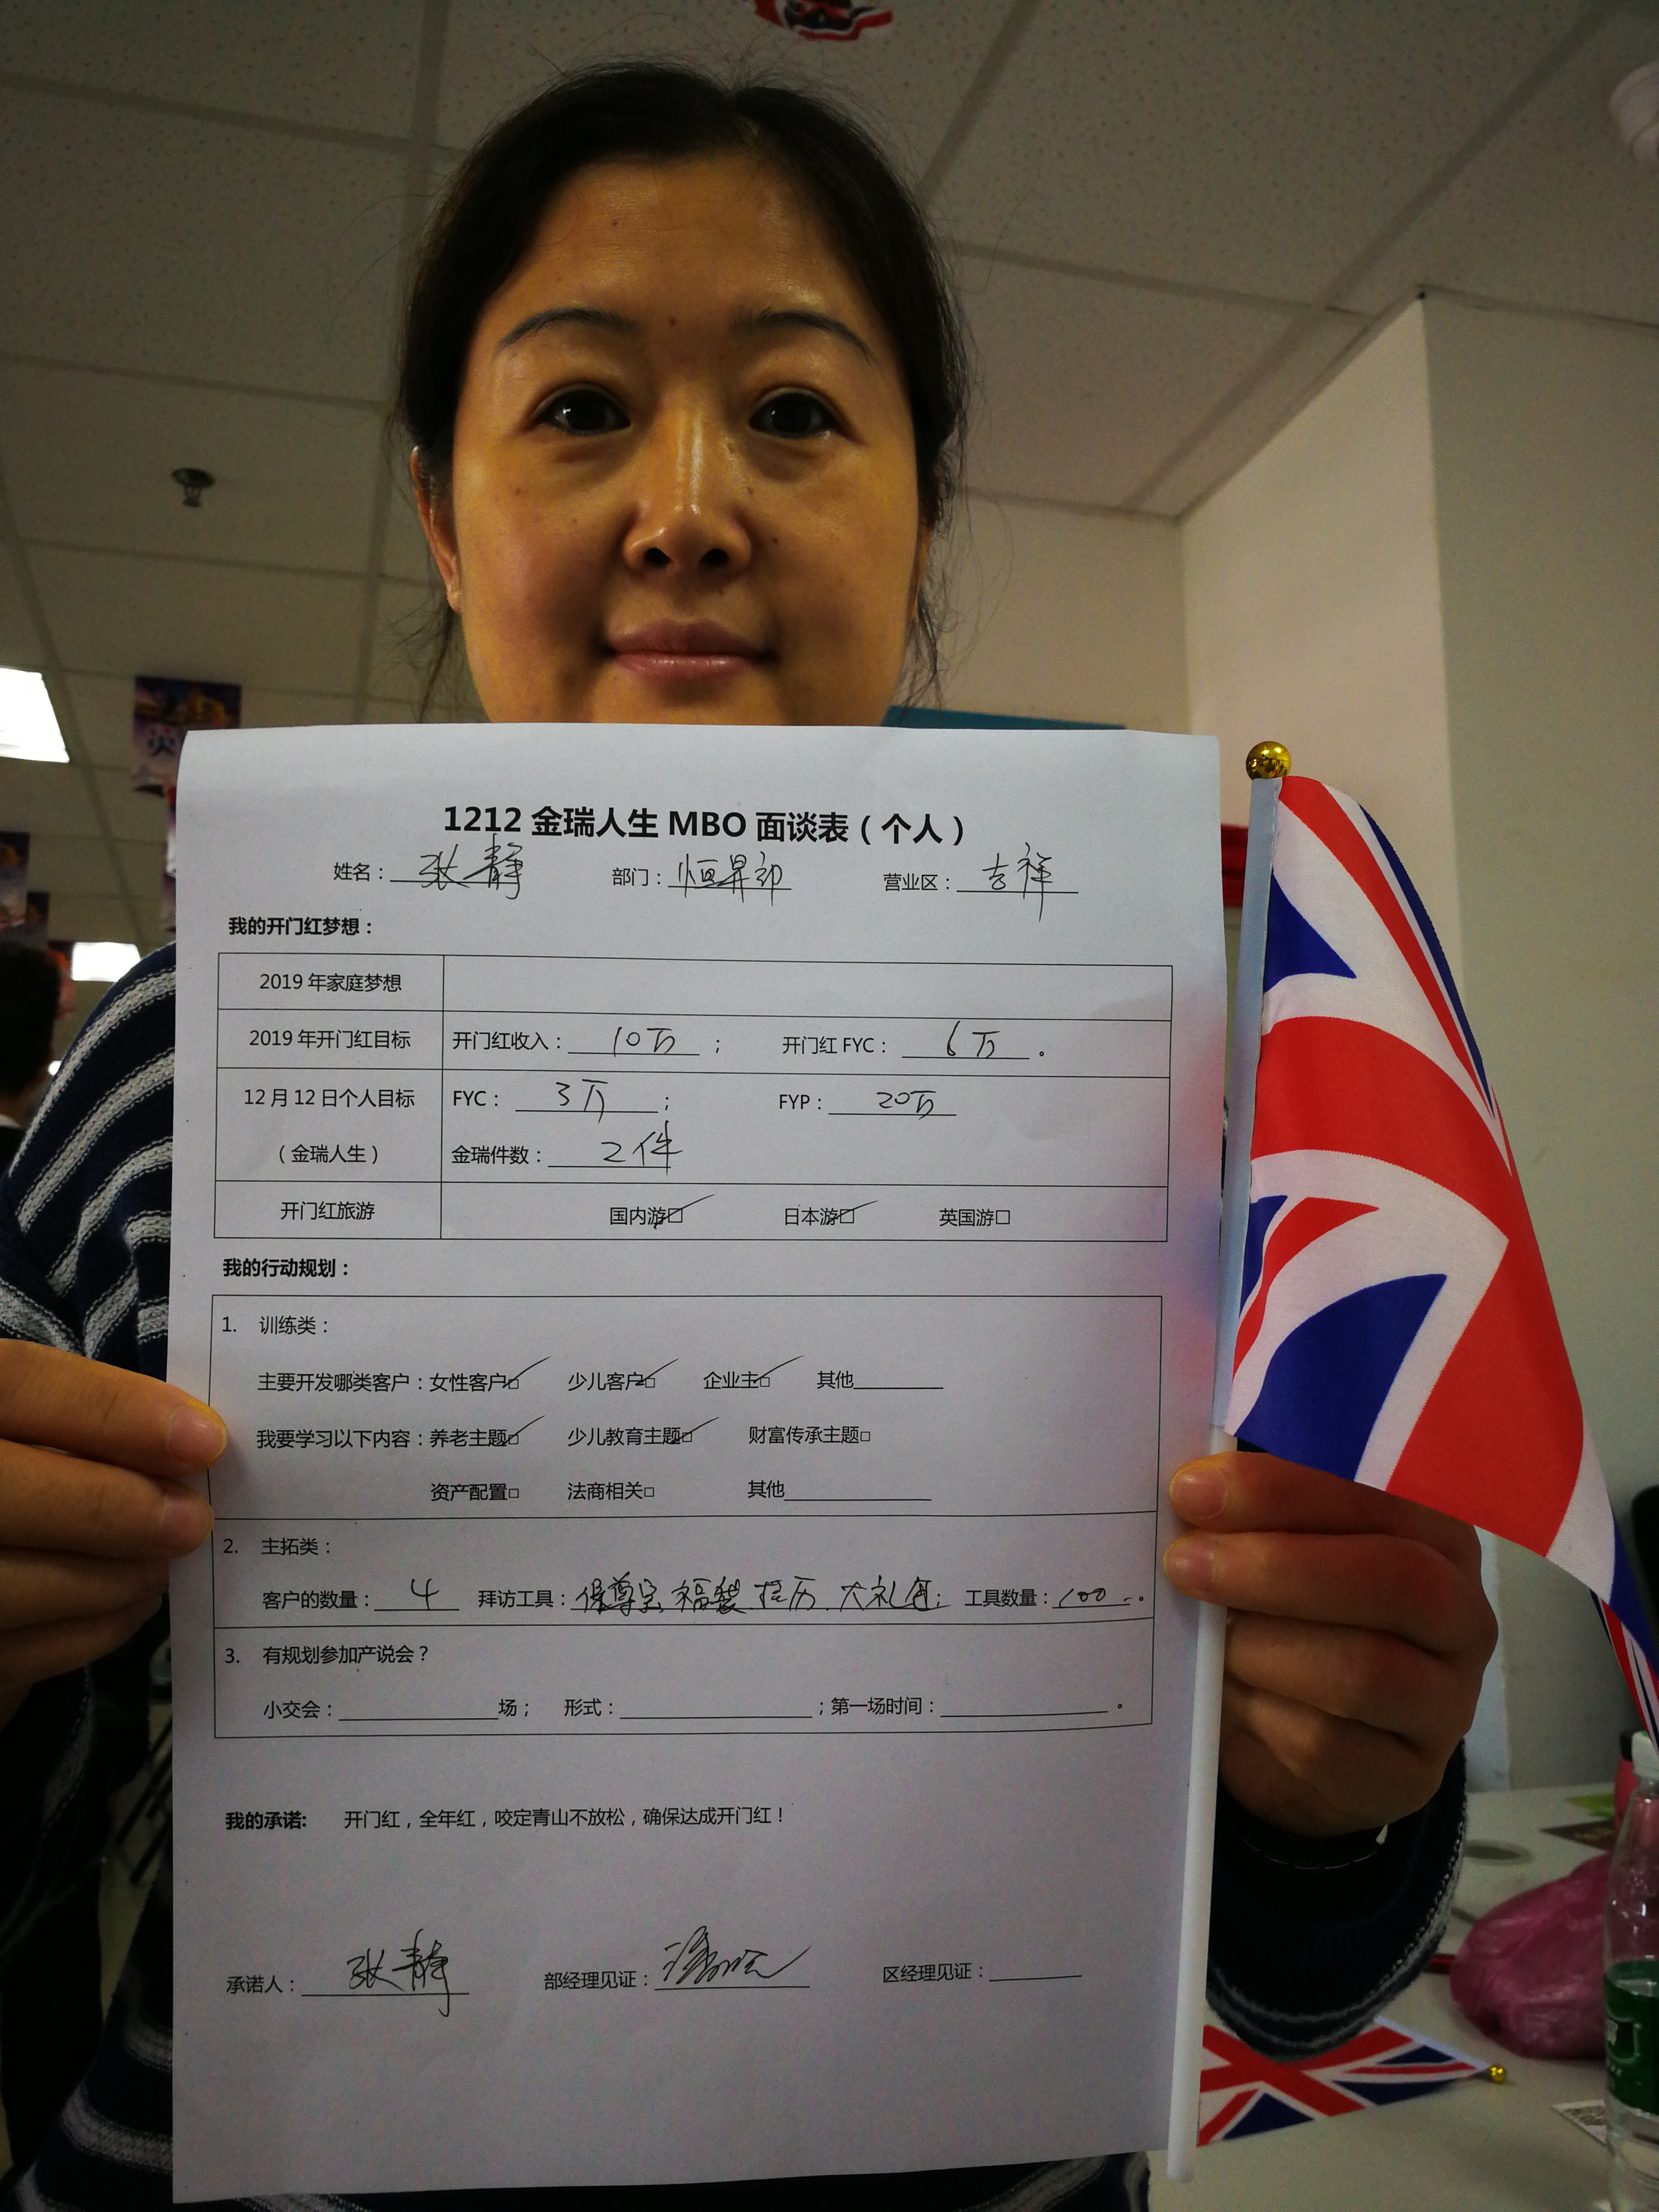 1212金瑞人生MBO面谈表（个人）
姓名：张静 部门：恒昇部 营业区：吉祥
我的开门红梦想：
2019年家庭梦想
2019年开门红目标 开门红收入：10万； 开门红FYC：6万。
12月12日个人目标 FYC：3万； FYP：20万
（金瑞人生） 金瑞件数：2件
开门红旅游 国内游☑ 日本游☑ 英国游□
我的行动规划：
1. 训练类：
主要开发哪类客户：女性客户☑ 少儿客户☑ 企业主☑ 其他
我要学习以下内容：养老主题☑ 少儿教育主题☑ 财富传承主题□
资产配置□ 法商相关□ 其他
2. 主拓类：
客户的数量：4 拜访工具：保尊宝 福袋 挂历 大礼包； 工具数量：100。
3. 有规划参加产说会？
小交会：场； 形式：；第一场时间：。
我的承诺: 开门红，全年红，咬定青山不放松，确保达成开门红！
承诺人：张静 部经理见证： 区经理见证：